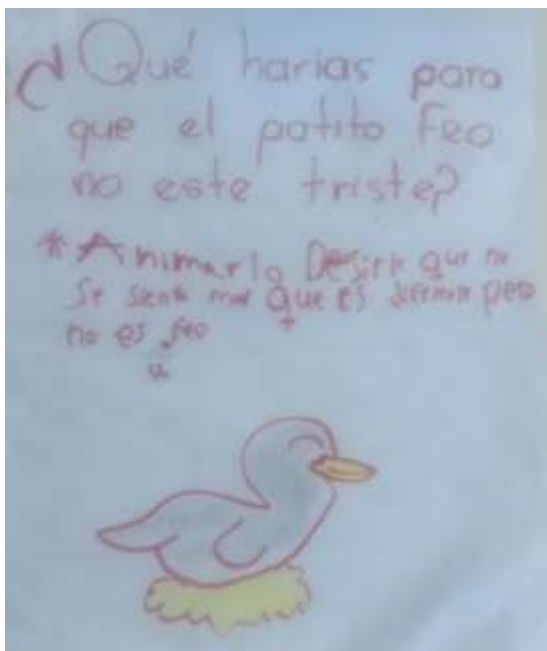 ¿Qué harias para
que el patito Feo
no este triste?
*Animarlo Desirle que no
Se sienta mal que es diferente pero
no es feo